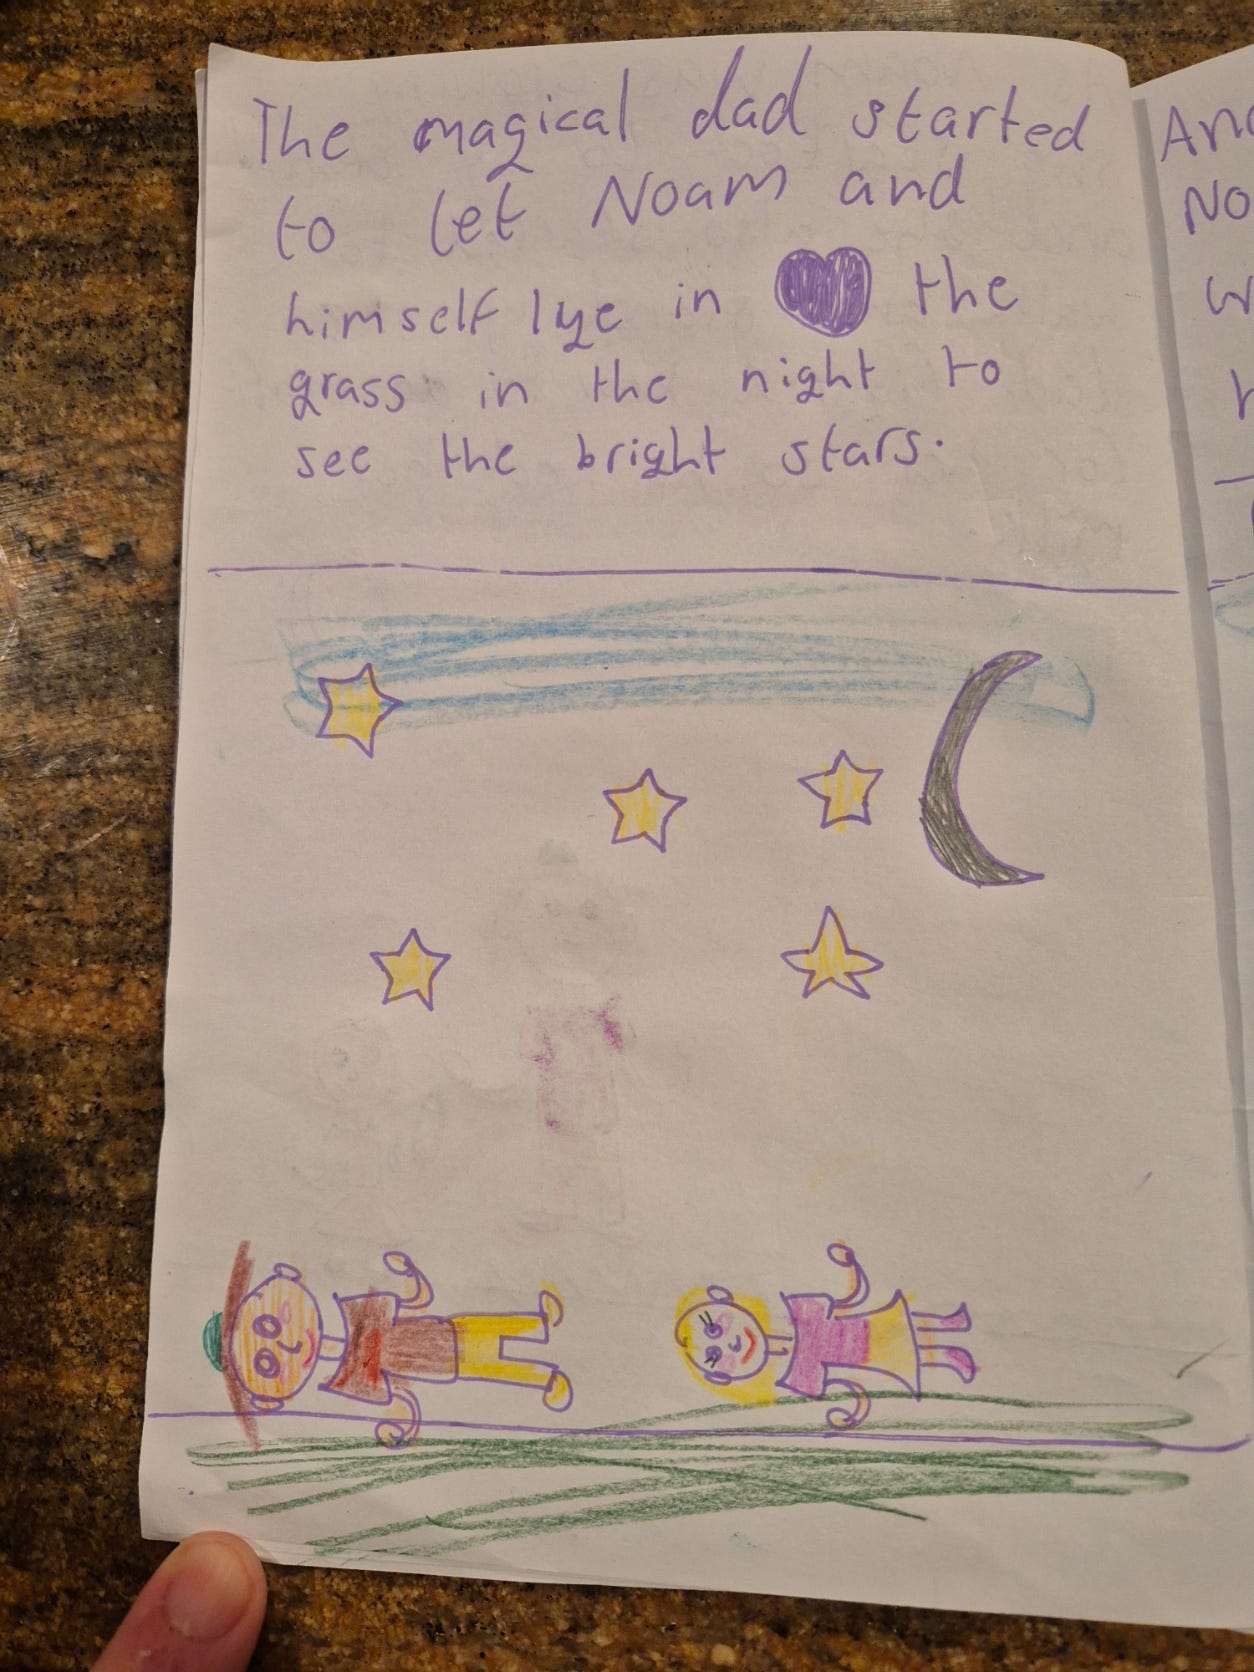 The magical dad started
to let Noam and
himself lye in the
grass in the night to
see the bright stars.